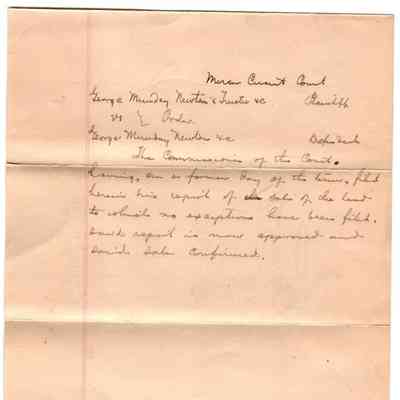 Mercer Circuit Court
George Munday Newton & Trustee &c Plaintiff
vs } Order
George Munday Newton &c Defendant
The Commissioner of the Court,
having, on a former day of the term, filed
herein his report of sale of the land
to which no exceptions have been filed.
said report is now approved and
said sale confirmed.